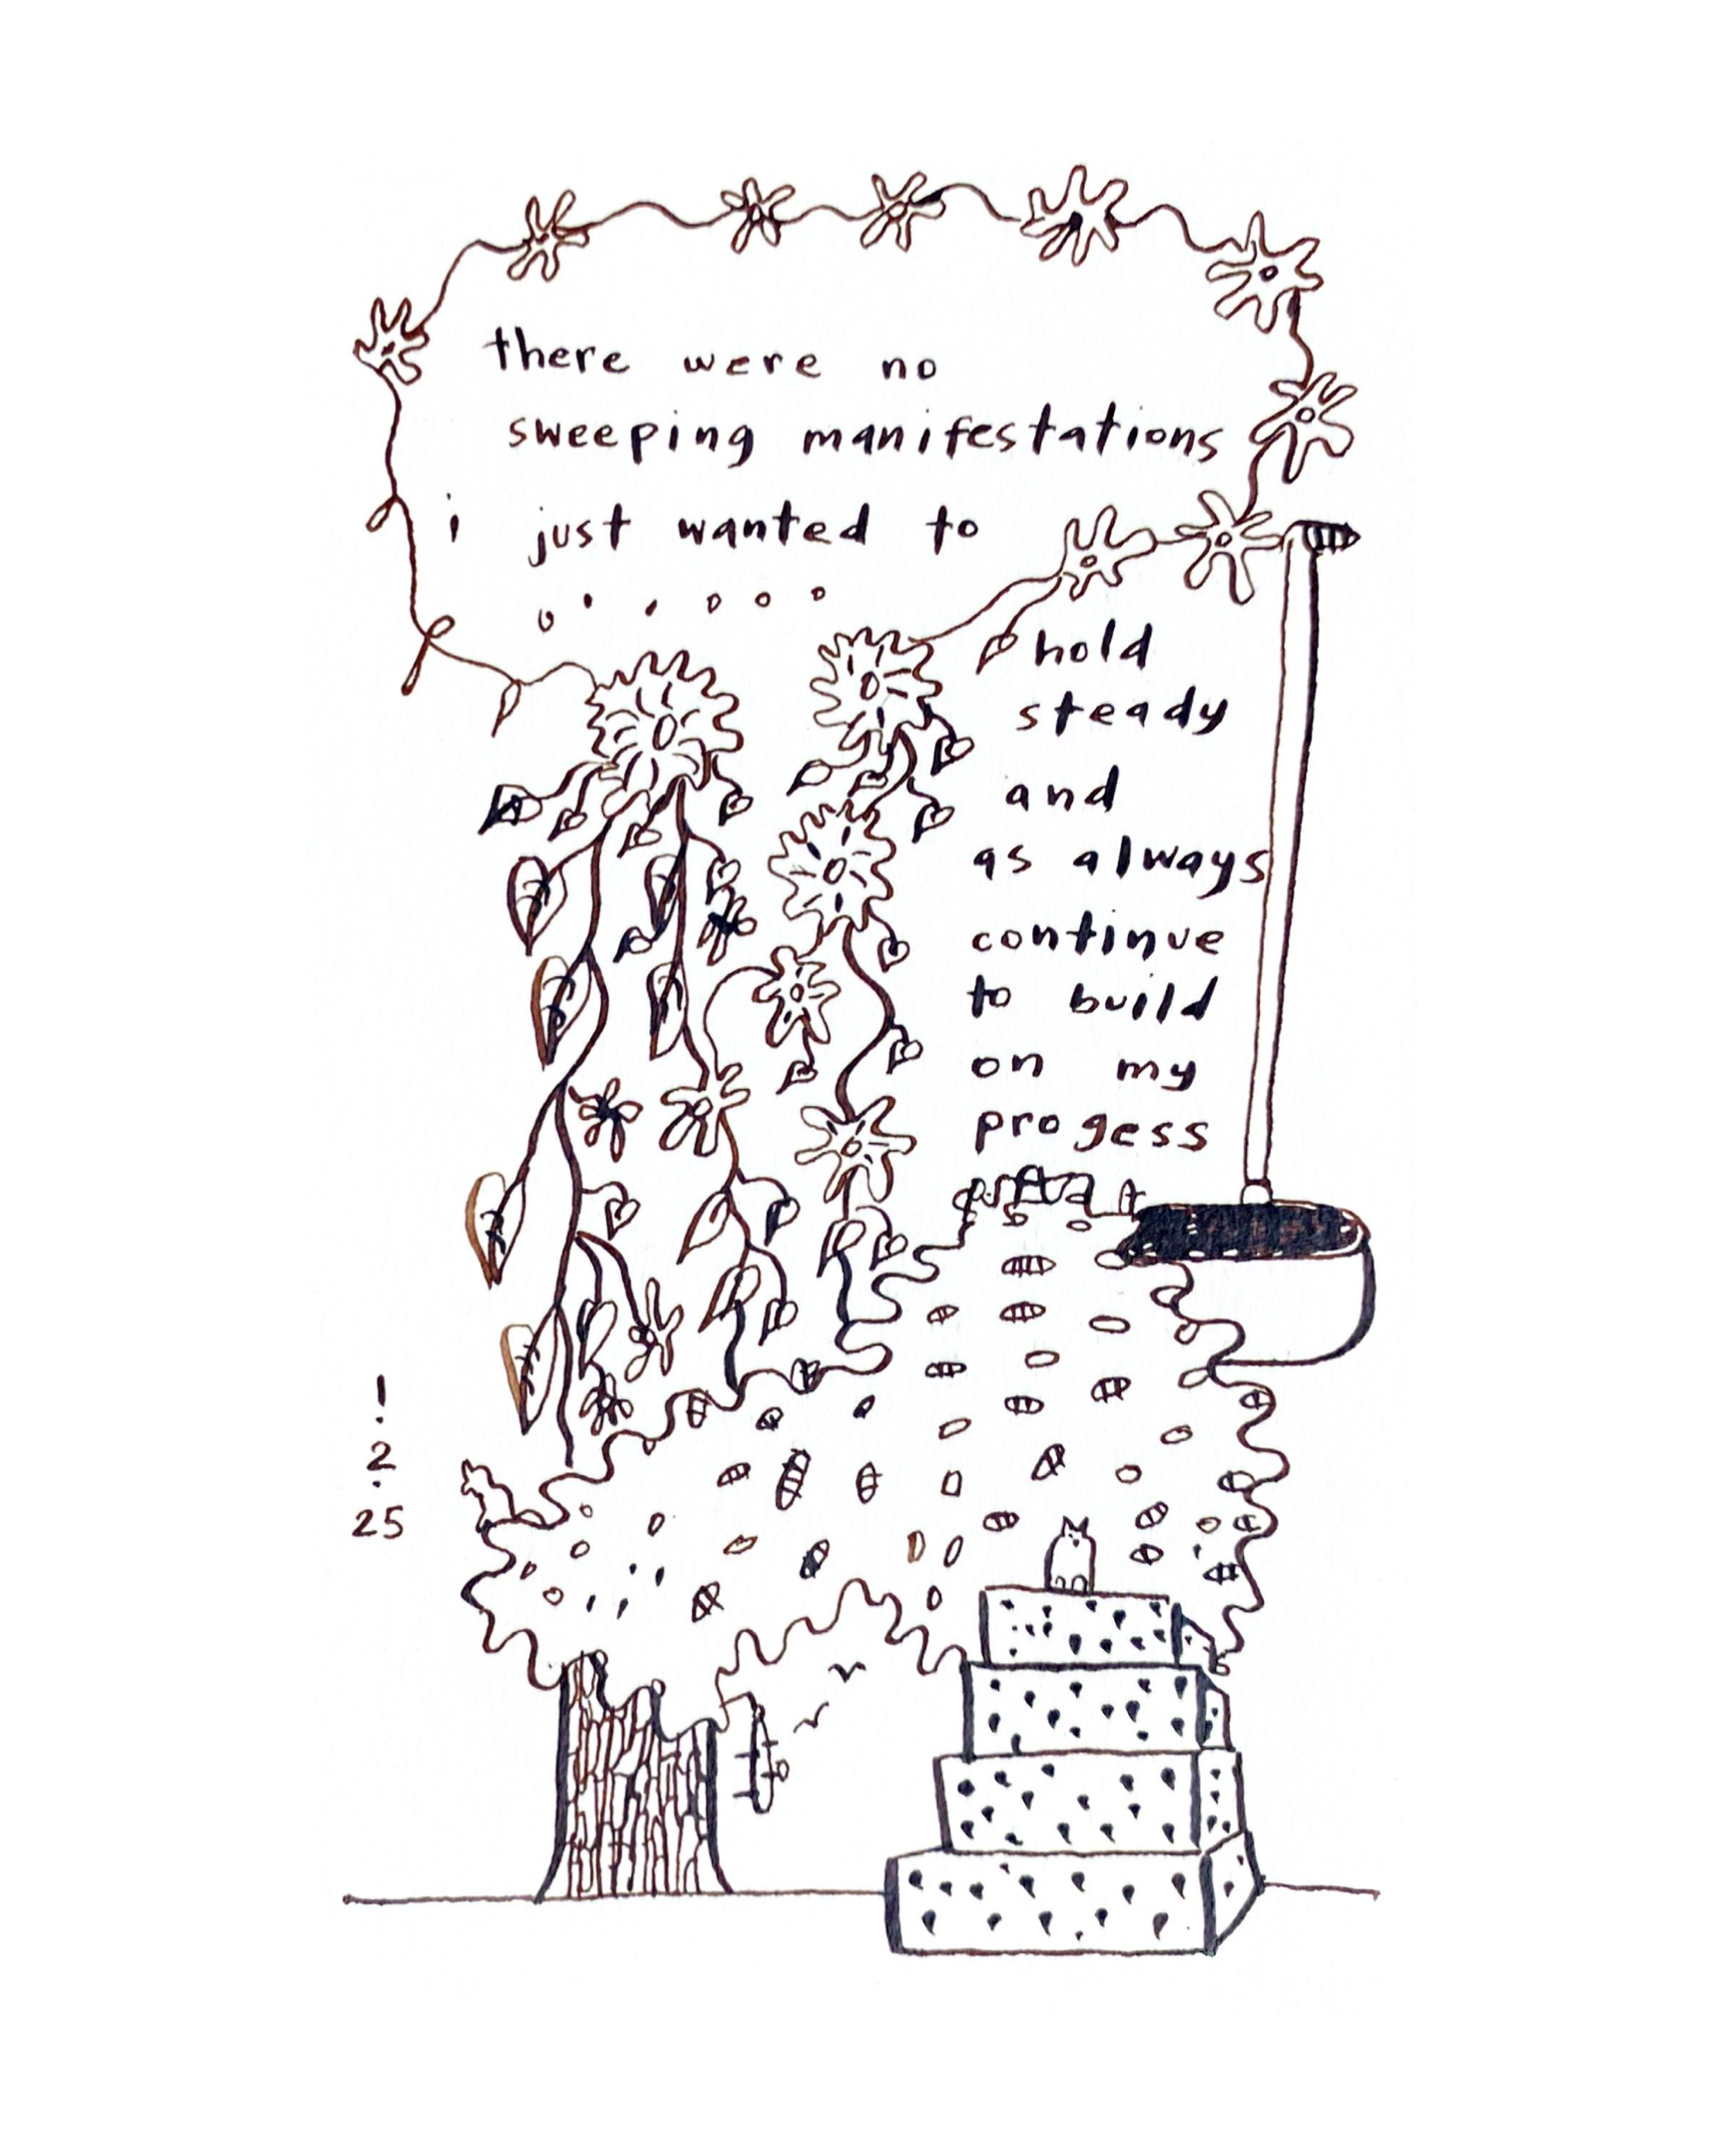 there were no
sweeping manifestations
i just wanted to
hold
steady
and
as always
continue
to build
on my
progess
1
.
2
.
25